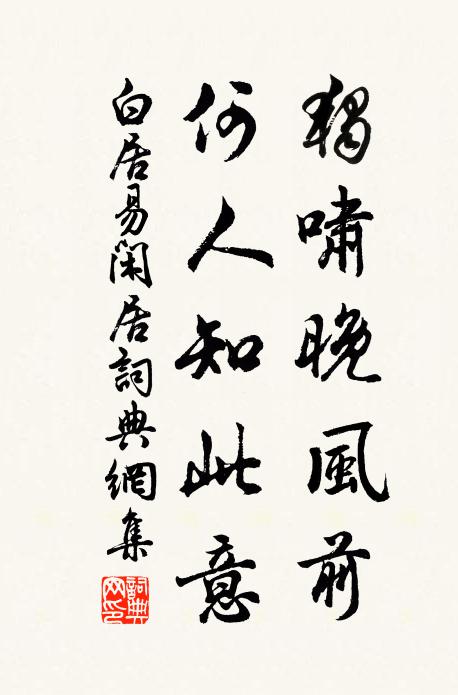 獨嘯晚風前
何人知此意
白居易閑居詞典網集
詞典網印